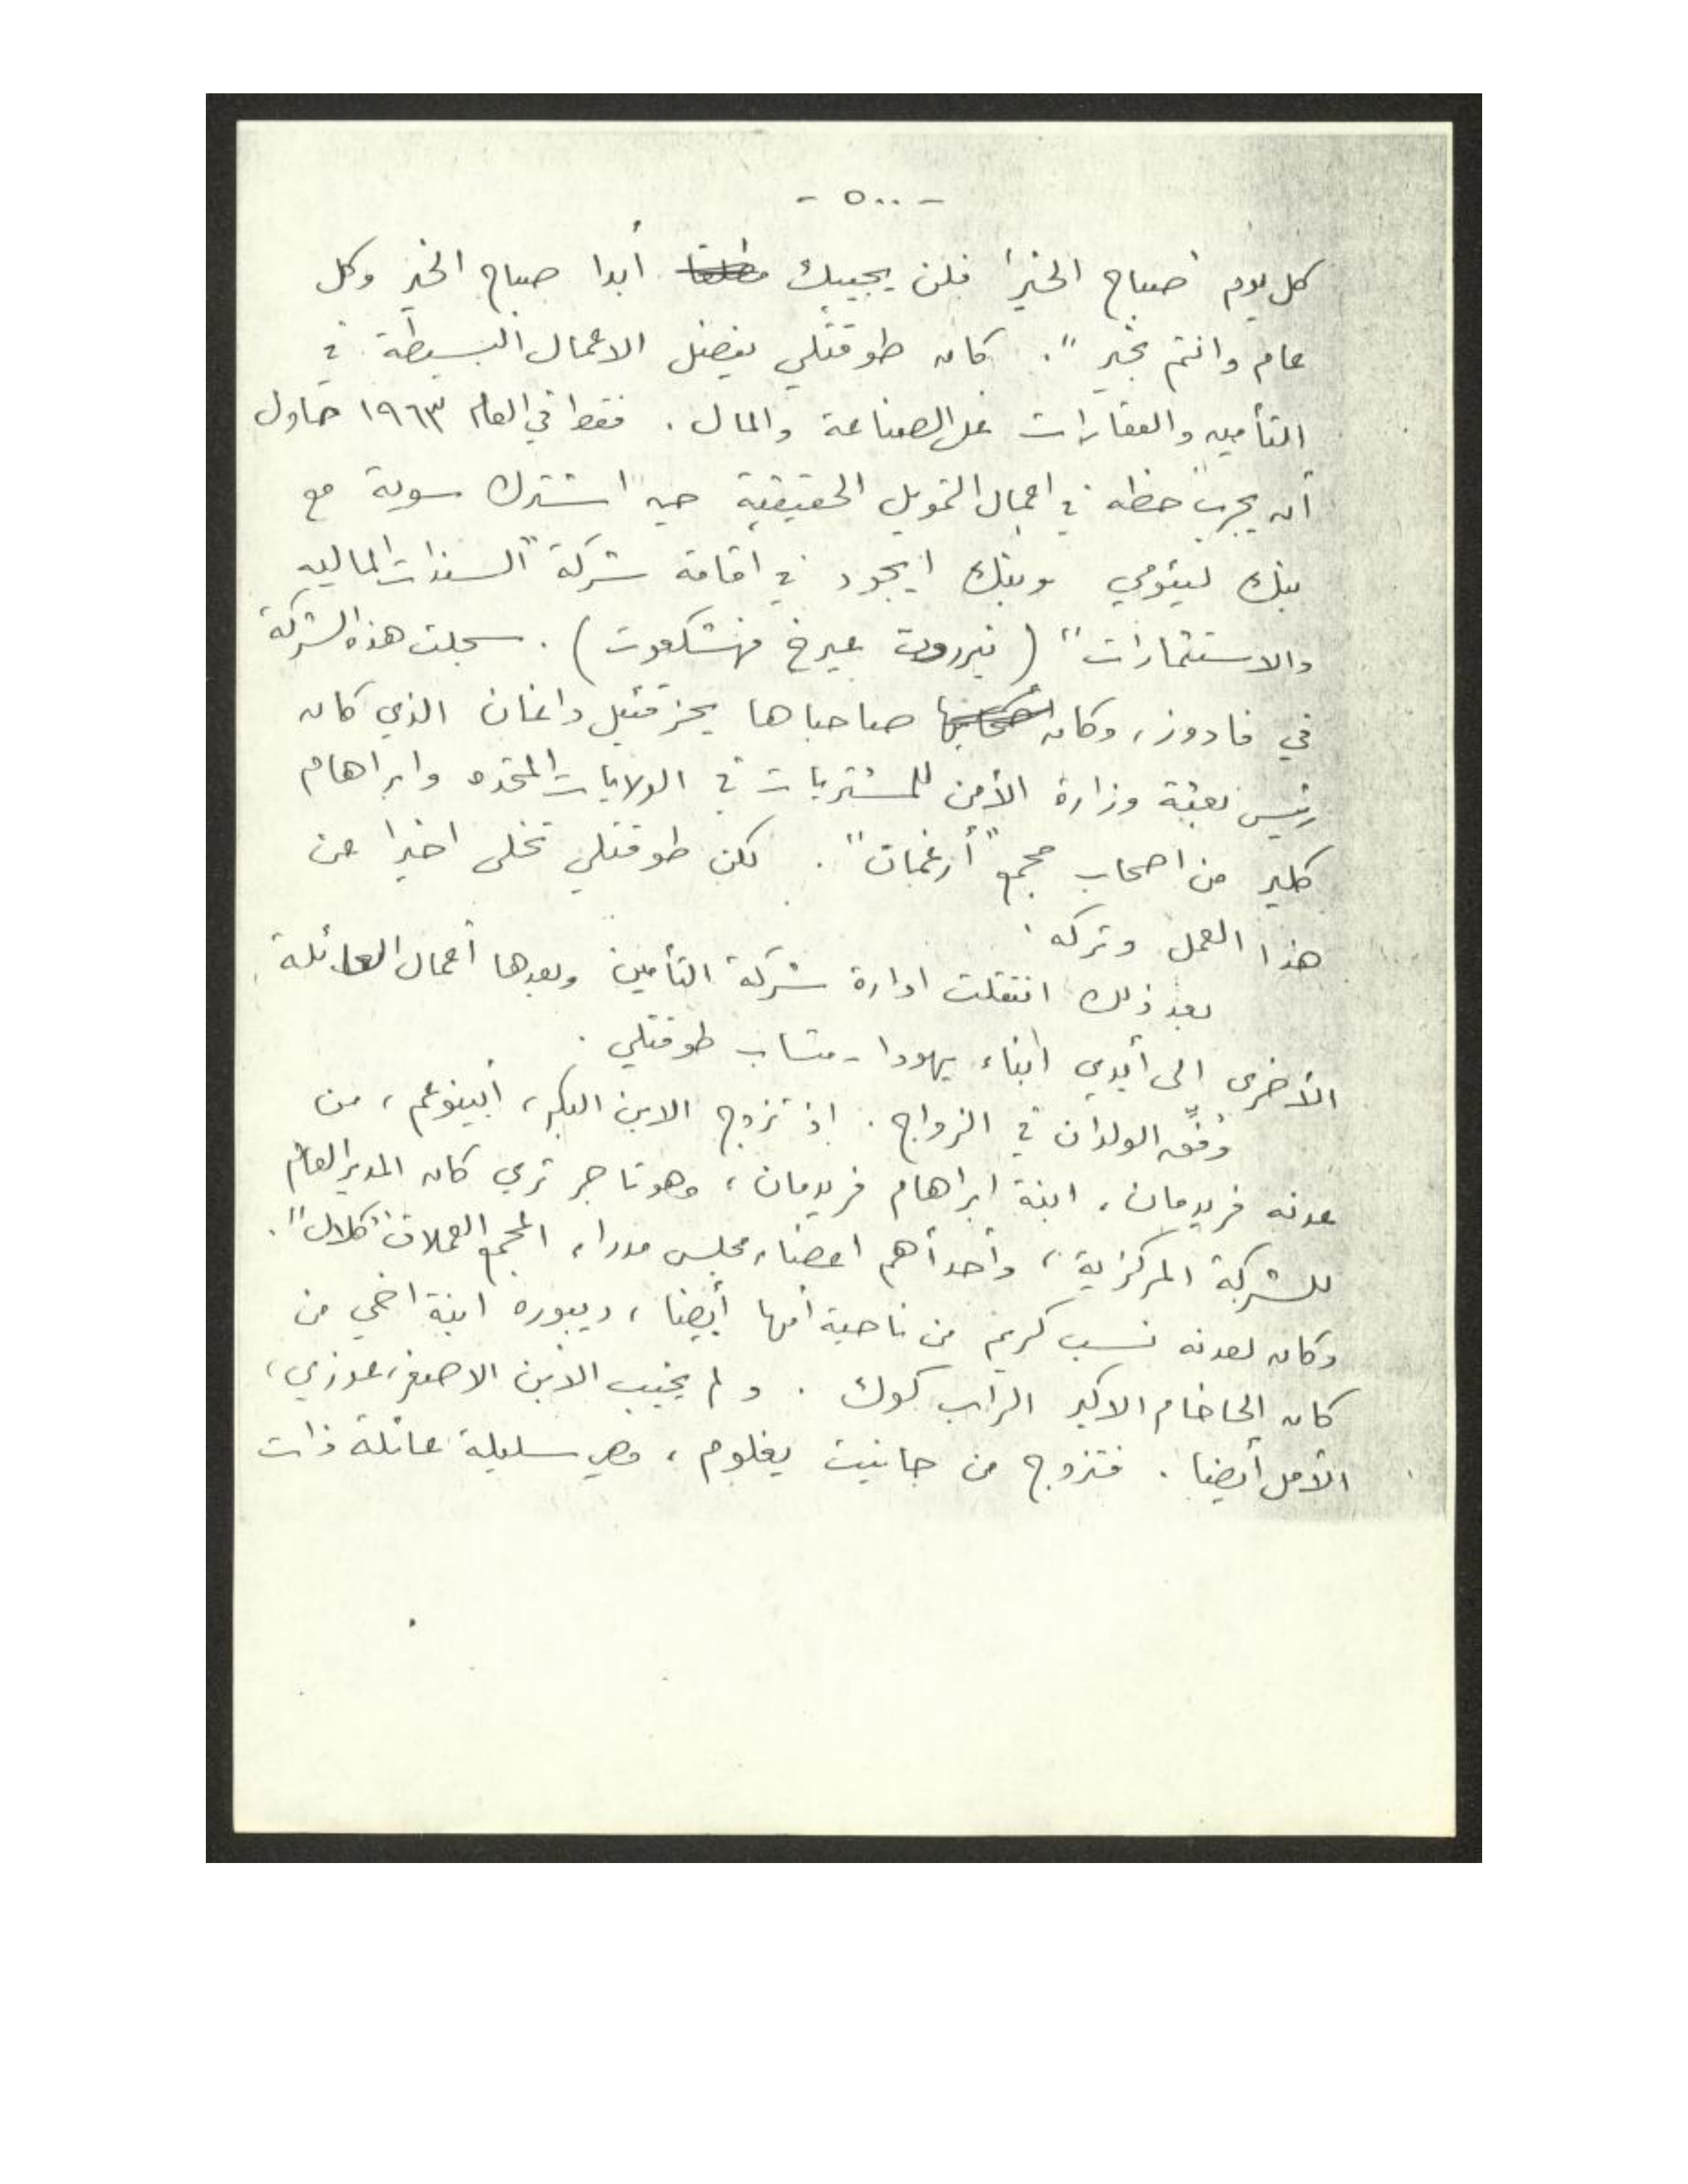 - ٥٠٠ -
كل يوم "صباح الخير" فلن يجيبك أبدا صباح الخير وكل
عام وانتم بخير". كان طوقتلي يفضل الاعمال البسيطة في
التأمين والعقارات على الصناعة والمال. فقط في العام ١٩٦٣ حاول
أن يجرب حظه في اعمال التمويل الحقيقية حين اشترك سوية مع
بنك ليئومي وبنك ايجود في اقامة شركة "السندات المالية
والاستثمارات" (نيروت عيرخ فهشكعوت). سجلت هذه الشركة
في فادوز، وكان صاحباها يحزقئيل داغان الذي كان
رئيس بعثة وزارة الأمن للمشتريات في الولايات المتحده وابراهام
كلير من اصحاب مجمع "أرغمان". لكن طوقتلي تخلى اخيرا عن
هذا العمل وتركه.
بعد ذلك انتقلت ادارة شركة التأمين وبعدها أعمال العائلة
الأخرى الى أيدي ابناء يهودا - متساب طوقتلي.
وُفِّق الولدان في الزواج. اذ تزوج الابن البكر، أبينوعم، من
عدنه فريدمان، ابنة ابراهام فريدمان، وهو تاجر ثري كان المدير العام
للشركة المركزية، وأحد أهم اعضاء مجلس مدراء المجمع العملاق "كلال".
وكان لعدنه نسب كريم من ناحية أمها أيضا، ديبوره ابنة اخي من
كان الحاخام الاكبر الراب كوك. ولم يخيب الابن الاصغر، عوزي،
الأمل أيضا. فتزوج من جانيت يغلوم، وهي سليلة عائلة ذات